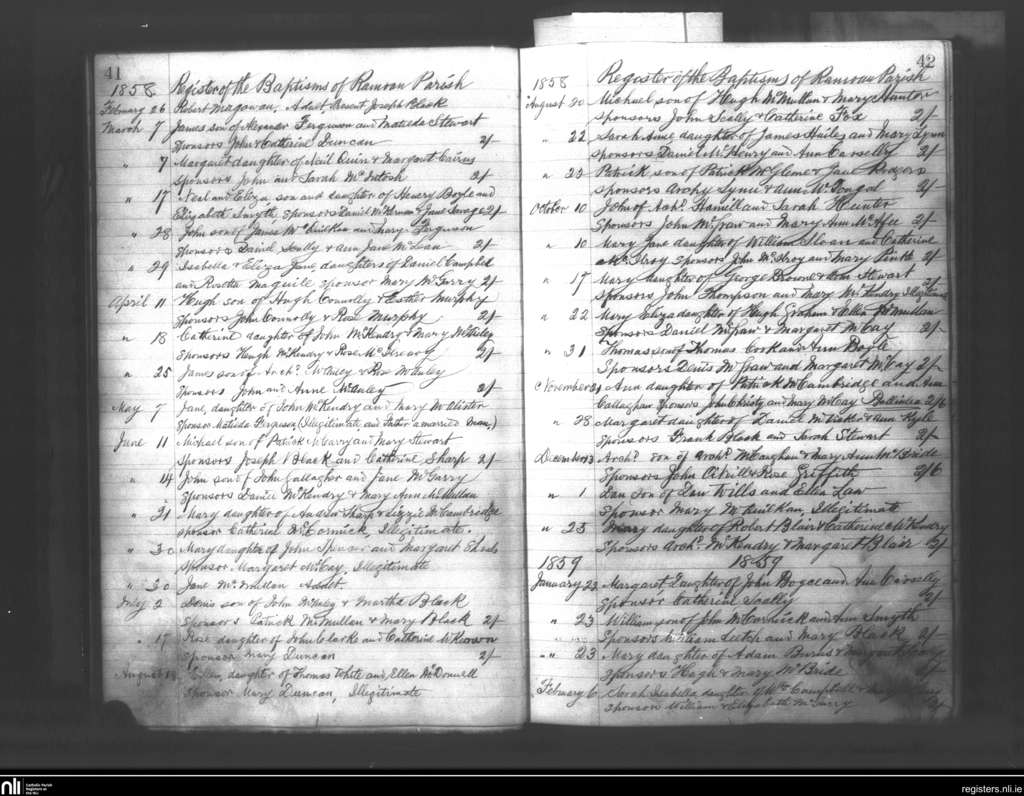 41
1858 Register of the Baptisms of Ramoan Parish
February 26 Robert Magowan, Adult Present Joseph Black
March 7 James son of Alexander Ferguson and Matilda Stewart
Sponsors John & Catherine Duncan 2/-
" 7 Margaret daughter of Neil Quinn & Margaret Cairns
Sponsors John and Sarah McIntosh 2/-
" 17 Neal and Eliza son and daughter of Henry Boyle and
Elizabeth Smyth Sponsors Daniel McKernan & Jane Savage 2/-
" 28 John son of James McQuilkan and Mary Ferguson
Sponsors Daniel Scally & Ann Jane McLean 2/-
" 29 Isabella & Eliza Jane, daughters of Daniel Campbel
and Rosetta Maguile sponsor Mary McGarry 2/-
April 11 Hugh son of Hugh Connolly & Esther Murphy
Sponsors John Connolly & Rose Murphy 2/-
" 18 Catherine daughter of John McKendry & Mary
Sponsors Hugh McKendry & Rose 2/-
" 25 James son of Archd. McAuley & Rose McAuley
Sponsors John and Anne McAuley 2/-
May 7 Jane, daughter of John McKendry and Mary McAlister
Sponsor Matilda Ferguson (Illegitimate, and Father a married man,)
June 11 Michael son of Patrick McGarry and Mary Stewart
Sponsors Joseph Black and Catherine Sharp 2/-
" 14 John son of John Gallagher and Jane McGurry
Sponsors Daniel McKendry & Mary Ann McMullan
" 21 Mary daughter of Andrew Sharp & Lizzie McCambridge
sponsor Catherine McCormick, Illegitimate.
" 30 Mary daughter of John Spencer and Margaret
Sponsor Margaret McCay, Illegitimate
" 30 Jane McMullan Adult.
July 2 Denis son of John & Martha Black
Sponsors Patrick McMullan & Mary Black 2/-
" 17 Rose daughter of John Clarke and Catherine McKernon
Sponsor Mary Duncan 2/-
August 18 Ellen, daughter of Thomas White and Ellen McDonnell
Sponsor Mary Duncan, Illegitimate
42
1858 Register of the Baptisms of Ramoan Parish
August 20 Michael son of Hugh McMullan & Mary Hunter
Sponsors John Scally & Catherine Fox 2/-
" 22 Sarah Anne daughter of James Hailey and Mary Lynn
Sponsors Daniel McHenry and Ann Casselly 2/-
" 22 Patrick son of Patrick & Jane
Sponsors Archy Lynn & Ann 2/-
October 10 John of Archd. Hamill and Sarah Hunter
Sponsors John McGraw and Mary Ann McAfee 2/-
" 10 Mary Jane daughter of William Sloan and Catherine
McIlroy Sponsors John McIlroy and Mary 2/-
" 17 Mary daughter of George Browne & Ann Stewart
Sponsors John Thompson and Mary McKendry Illegitimate 2/-
" 22 Mary Eliza daughter of Hugh Graham & Ellen McMullan
Sponsors Daniel McGraw & Margaret McCay 2/-
" 31 Thomas son of Thomas Cork and Ann Boyle
Sponsors Denis McGraw and Margaret McCay 2/-
November 21 Ann daughter of Patrick McCambridge and Ann
Callaghan Sponsors John Christy and Mary McCay Ballinlea 2/6
" 28 Margaret daughter of Daniel & Ann Kyle
Sponsors Frank Black and Sarah Stewart 2/-
December 3 Archd. son of Archd. McCaughan & Mary Ann McBride
Sponsors John O'Neill & Rose Griffith 2/6
" 1 Dan son of Dan Wills and Ellen Law
Sponsor Mary McQuilkan, Illegitimate
" 25 Mary daughter of Robert Blair & Catherine McKendry
Sponsors Archd. McKendry & Margaret Blair 2/-
1859 1859
January 23 Margaret Daughter of John Bogue and Ann Casselly
Sponsor Catherine Scally 2/-
" 23 William son of John McCormick and Ann Smyth
Sponsors William Leetch and Mary Black 2/-
" " 23 Mary daughter of Adam Burns & Margaret
Sponsors Hugh & Mary McBride 2/-
February 6 Sarah Isabella daughter of Wm. Campbell &
Sponsors William & Elizabeth McGurry 2/-
nli
Catholic Parish
Registers at
the NLI
registers.nli.ie